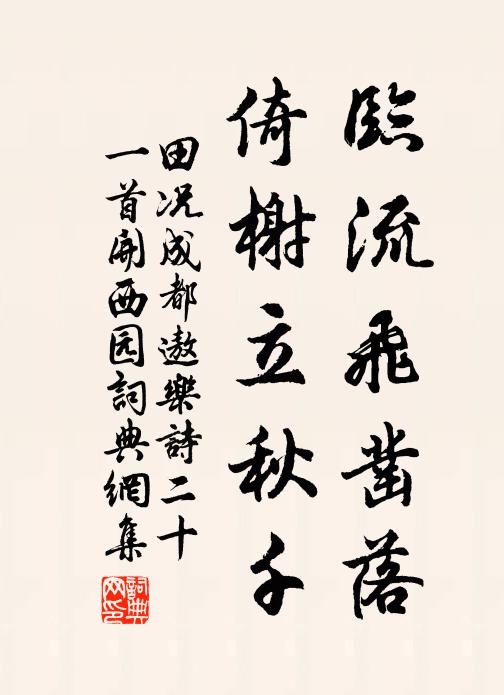 臨流飛凿落
倚榭立秋千
田况成都遨樂詩二十
一首開西园詞典網集
詞典网印